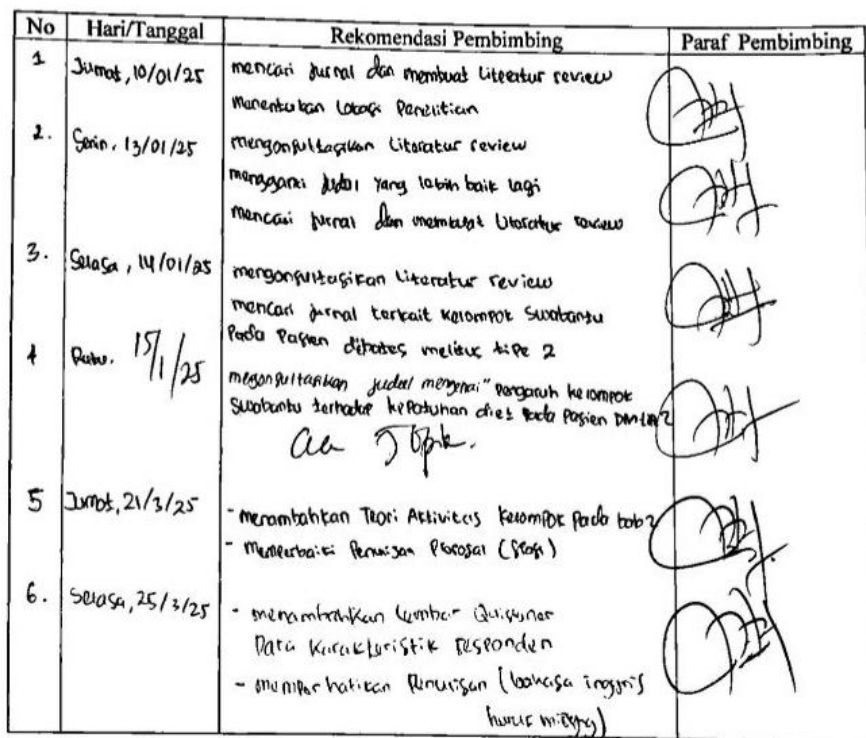 No Hari/Tanggal Rekomendasi Pembimbing Paraf Pembimbing
1 Jumat, 10/01/25 mencari jurnal dan membuat literatur review
menentukan lokasi Penelitian
2. Senin, 13/01/25 mengonsultasikan literatur review
mengganti judul yang lebih baik lagi
mencari jurnal dan membuat literatur review
3. Selasa, 14/01/25 mengonsultasikan literatur review
mencari jurnal terkait kelompok swabantu
Pada Pasien dibates melitus tipe 2
4 Rabu. 15/1/25 megonsultasikan judul mengenai "pengaruh kelompok
swabantu terhadap kepatuhan diet pada pasien DM
Acc Topik.
5 Jumat, 21/3/25 - menambahkan Teori Aktivitas kelompok pada bab 2
- memperbaiki Penulisan Proposal
6. Selasa, 25/3/25 - menambahkan lembar Quisoner
Data karakteristik responden
- memperhatikan Penulisan (bahasa inggris
huruf miring)